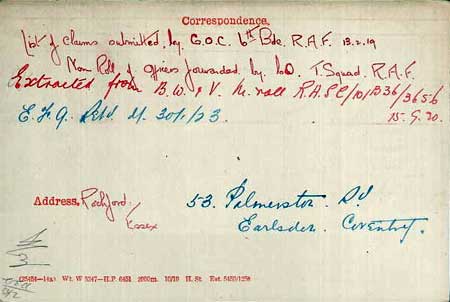 Correspondence.
List of claims submitted by G.O.C. 6th Bde. R.A.F. 13.2.19
Nom Roll of Officers forwarded by C.O. T. Squad. R.A.F.
Extracted from B.W. & V. M. roll R.A.F.E/10/B36/3656
15.9.20.
E.F.9. Retd. M. 30/1/23.
Address. Rochford.
Essex
53. Palmerston Rd
Earlsden. Coventry.
(25484—14a) Wt. W 5047—H.P. 6451 2000m. 10/19 H. St. Est. 5450/1258